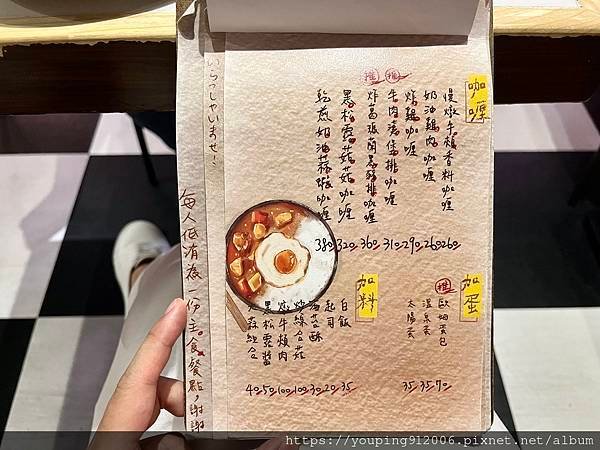 咖喱
慢燉牛頰香料咖喱
奶油雞肉咖喱
炸雞咖喱
推 牛肉漢堡排咖喱
推 炸高坂菌黑豬排咖喱
黑松露菇菇咖喱
乾煎奶油蒜蝦咖喱
380 320 360 310 290 260 260
加蛋
推 歐姆蛋包
溫泉蛋
太陽蛋
35 35 70
加料
白飯
起司
海苔酥
炒綜合菇
燉牛頰肉
黑松露醬
大蒜組合
40 50 100 100 30 20 35
いらっしゃいませ!
每人低消為一份主食餐點,謝謝
https://youping912006.pixnet.net/album